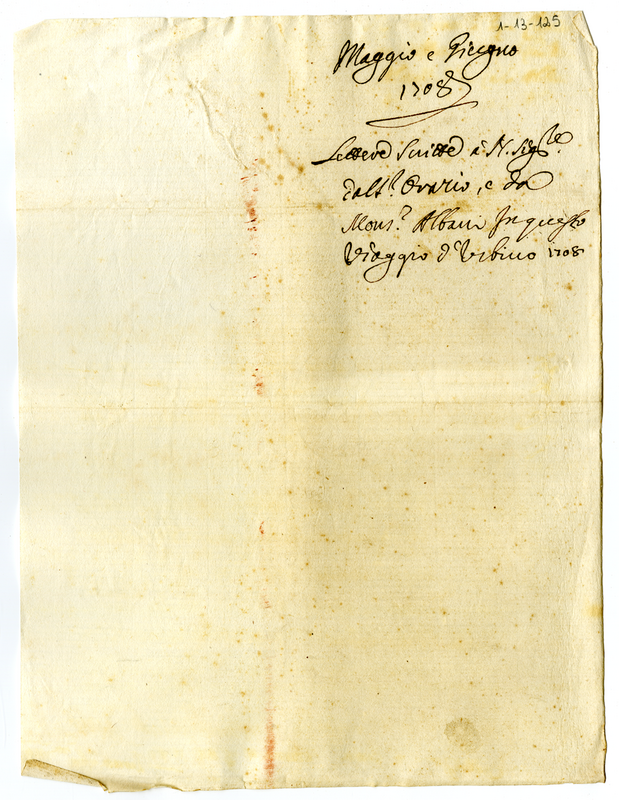 1-13-125
Maggio e Giugno
1708
Lettere Scritte à N. Sig.re
Orazio, e da
Mons.r Albani In questo
Viaggio d'Urbino 1708